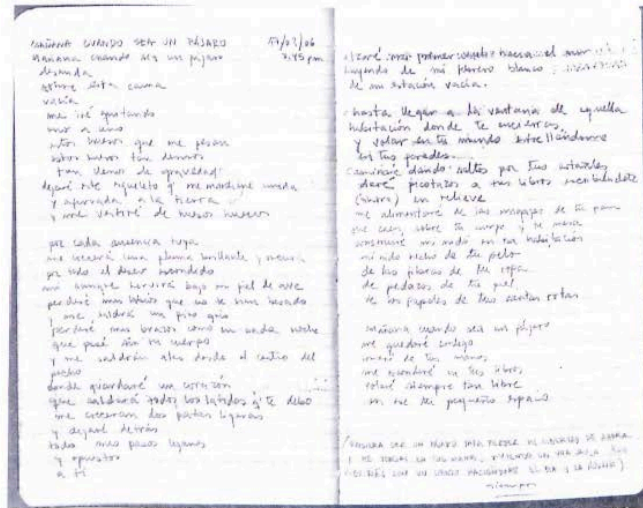 MAÑANA CUANDO SEA UN PÁJARO
mañana cuando sea un pájaro
desnuda
sobre esta cama
vacía
me iré quitando
uno a uno
estos huesos que me pesan
estos huesos tan densos
tan llenos de gravedad
dejaré este esqueleto y me marcharé
y aferrada a la tierra
y me vestiré de huesos huecos
por cada ausencia tuya
me crecerá una pluma brillante y
por todo el deseo escondido
bajo mi piel de ave
perderé mis labios que no te han besado
y me saldrá un pico gris
perderé mis brazos como en cada noche
que pasé sin tu cuerpo
y me saldrán alas desde el centro del
pecho
donde guardaré un corazón
que saldará todos los latidos q te debo
me crecerán dos patas ligeras
y dejaré detrás
todos mis pasos lejanos
y opuestos
a ti
mi primer vuelo hacia el
huyendo de mi febrero blanco
de mi estación vacía.
hasta llegar a la ventana de aquella
habitación donde te encierras
y volar en tu mundo estrellándome
en tus paredes.
Caminaré dando saltos por tus
daré picotazos a tus libros escribiéndote
(ahora) en relieve
me alimentaré de las migajas de tu pan
que caen sobre tu cuerpo y tu mesa
construiré mi nido en tu habitación
mi nido hecho de tu pelo
de las de tu ropa
de pedazos de tu piel
de los papeles de tus cartas rotas
mañana cuando sea un pájaro
me quedaré contigo
comeré de tus manos
me esconderé en tus libros
volaré siempre tan libre
en ese tu pequeño espacio
siempre